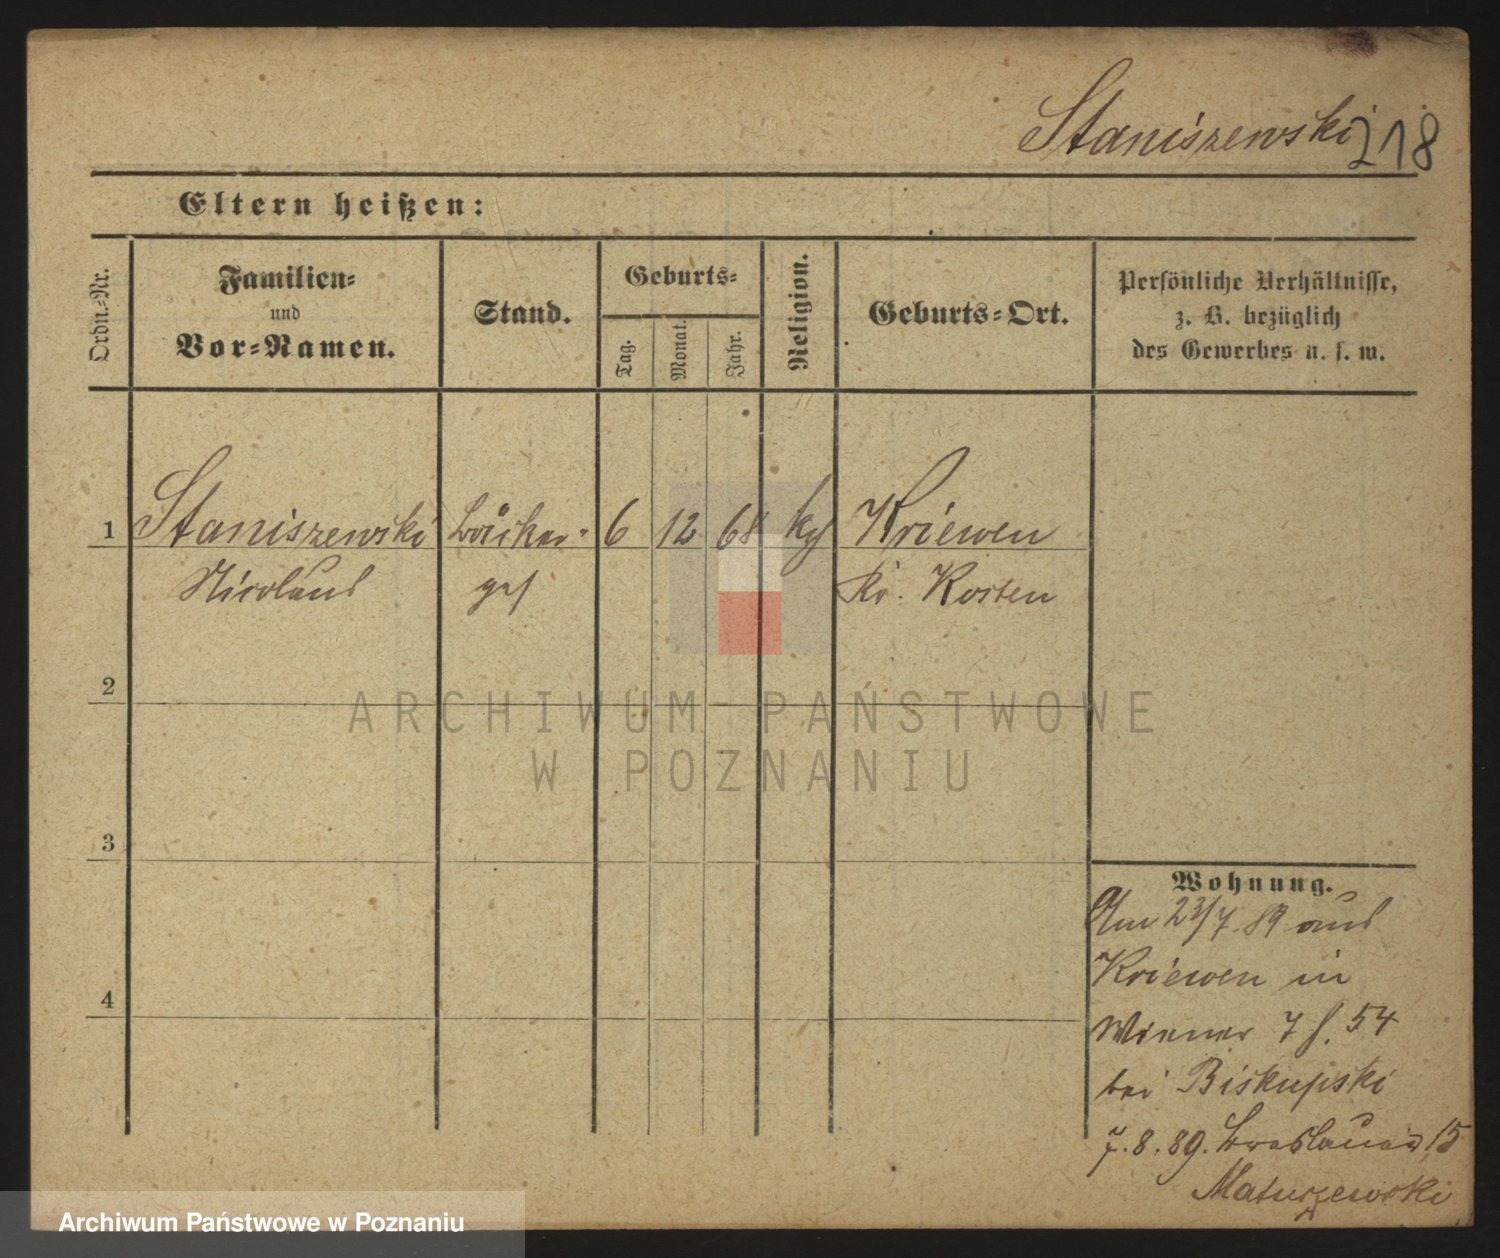 Staniszewski
218
Eltern heißen:
Ordn.=Nr.
Familien=
und
Vor=Namen.
Stand.
Geburts=
Tag.
Monat.
Jahr.
Religion.
Geburts=Ort.
Persönliche Verhältnisse,
z. B. bezüglich
des Gewerbes u. s. w.
1 Staniszewski Bäcker= 6 12 68 kth Kriewen
Nicolaus ges Kr. Kosten
2
3
4
Wohnung.
Am 23/7. 89 aus
Kriewen in
Wiener 7 54
bei Biskupski
7. 8. 89. Breslauer 15
Matuszewski
ARCHIWUM PAŃSTWOWE
W POZNANIU
Archiwum Państwowe w Poznaniu